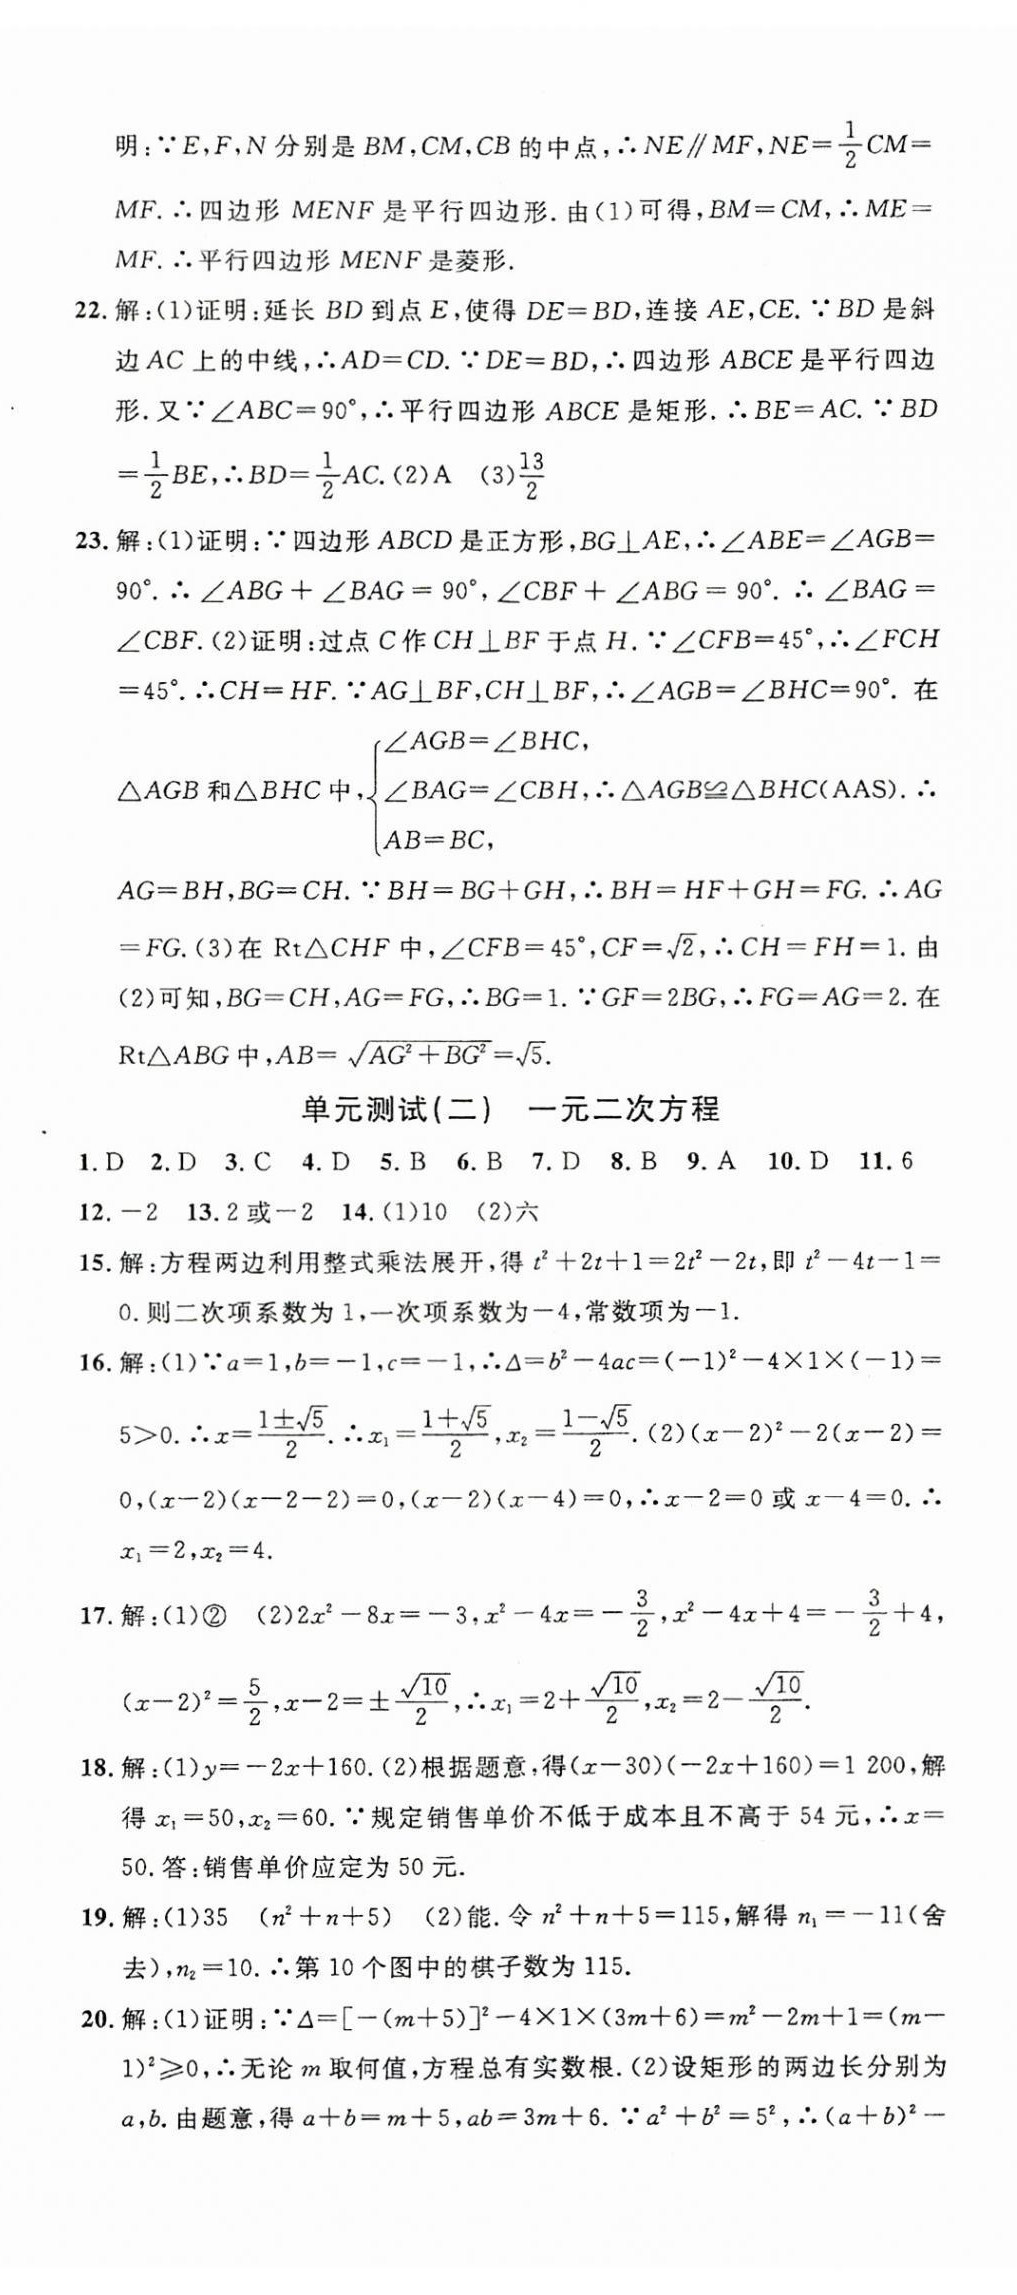 明:∵E,F,N 分别是 BM,CM,CB 的中点,∴NE∥MF,NE=1/2CM=
MF.∴四边形 MENF 是平行四边形.由(1)可得,BM=CM,∴ME=
MF.∴平行四边形 MENF 是菱形.
22.解:(1)证明:延长 BD 到点 E,使得 DE=BD,连接 AE,CE.∵BD 是斜
边 AC 上的中线,∴AD=CD.∵DE=BD,∴四边形 ABCE 是平行四边
形.又∵∠ABC=90°,∴平行四边形 ABCE 是矩形.∴BE=AC.∵BD
=1/2BE,∴BD=1/2AC.(2)A (3)13/2
23.解:(1)证明:∵四边形 ABCD 是正方形,BG⊥AE,∴∠ABE=∠AGB=
90°.∴∠ABG+∠BAG=90°,∠CBF+∠ABG=90°.∴∠BAG=
∠CBF.(2)证明:过点 C 作 CH⊥BF 于点 H.∵∠CFB=45°,∴∠FCH
=45°.∴CH=HF.∵AG⊥BF,CH⊥BF,∴∠AGB=∠BHC=90°.在
∠AGB=∠BHC,
△AGB 和△BHC 中,{∠BAG=∠CBH,∴△AGB≌△BHC(AAS).∴
AB=BC,
AG=BH,BG=CH.∵BH=BG+GH,∴BH=HF+GH=FG.∴AG
=FG.(3)在 Rt△CHF 中,∠CFB=45°,CF=√2,∴CH=FH=1.由
(2)可知,BG=CH,AG=FG,∴BG=1.∵GF=2BG,∴FG=AG=2.在
Rt△ABG 中,AB=√(AG²+BG²)=√5.
单元测试(二) 一元二次方程
1.D 2.D 3.C 4.D 5.B 6.B 7.D 8.B 9.A 10.D 11.6
12.-2 13.2 或-2 14.(1)10 (2)六
15.解:方程两边利用整式乘法展开,得 t²+2t+1=2t²-2t,即 t²-4t-1=
0.则二次项系数为 1,一次项系数为-4,常数项为-1.
16.解:(1)∵a=1,b=-1,c=-1,∴Δ=b²-4ac=(-1)²-4×1×(-1)=
5>0.∴x=(1±√5)/2.∴x₁=(1+√5)/2,x₂=(1-√5)/2.(2)(x-2)²-2(x-2)=
0,(x-2)(x-2-2)=0,(x-2)(x-4)=0,∴x-2=0 或 x-4=0.∴
x₁=2,x₂=4.
17.解:(1)② (2)2x²-8x=-3,x²-4x=-3/2,x²-4x+4=-3/2+4,
(x-2)²=5/2,x-2=±√10/2,∴x₁=2+√10/2,x₂=2-√10/2.
18.解:(1)y=-2x+160.(2)根据题意,得(x-30)(-2x+160)=1 200,解
得 x₁=50,x₂=60.∵规定销售单价不低于成本且不高于 54 元,∴x=
50.答:销售单价应定为 50 元.
19.解:(1)35 (n²+n+5) (2)能.令 n²+n+5=115,解得 n₁=-11(舍
去),n₂=10.∴第 10 个图中的棋子数为 115.
20.解:(1)证明:∵Δ=[-(m+5)]²-4×1×(3m+6)=m²-2m+1=(m-
1)²≥0,∴无论 m 取何值,方程总有实数根.(2)设矩形的两边长分别为
a,b.由题意,得 a+b=m+5,ab=3m+6.∵a²+b²=5²,∴(a+b)²-